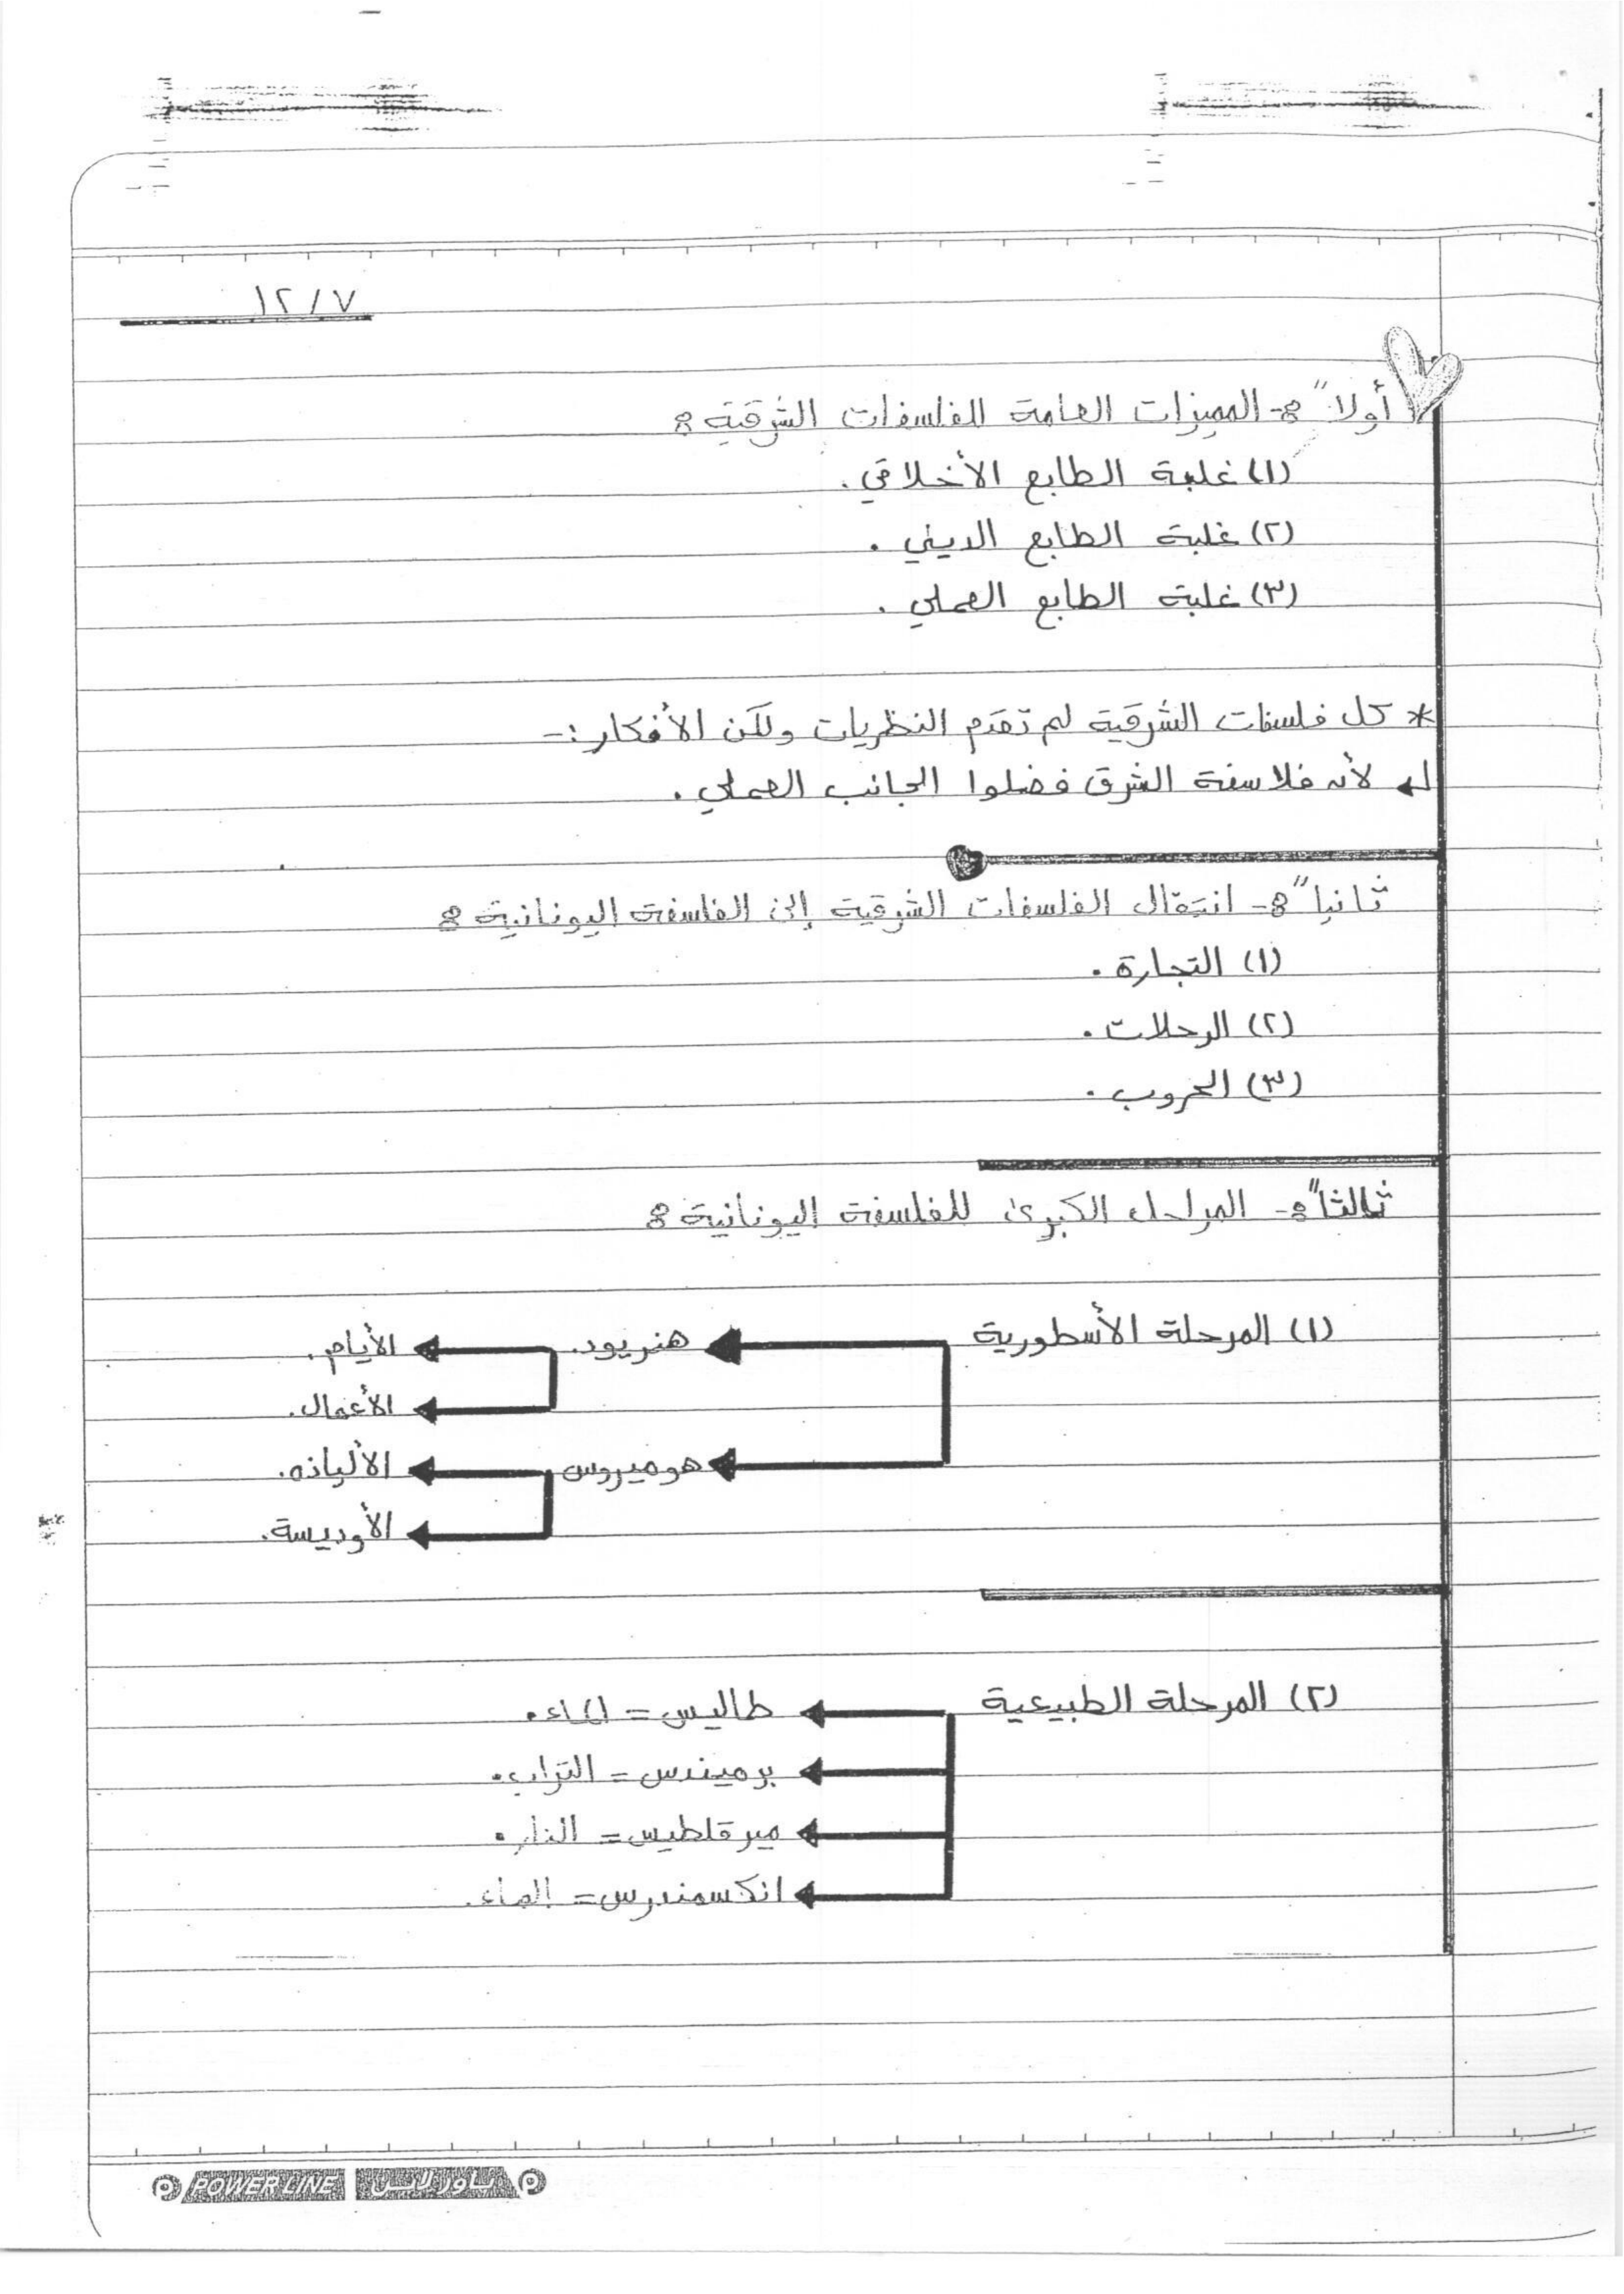 ١٢/٧
أولاً :- المميزات العامة للفلسفات الشرقية :
(١) غلبة الطابع الأخلاقي .
(٢) غلبة الطابع الديني .
(٣) غلبة الطابع العملي .
* كل فلسفات الشرقية لم تقدم النظريات ولكن الأفكار :-
لأن فلاسفة الشرق فضلوا الجانب العملي .
ثانياً :- انتقال الفلسفات الشرقية إلى الفلسفة اليونانية :
(١) التجارة .
(٢) الرحلات .
(٣) الحروب .
ثالثاً :- المراحل الكبرى للفلسفة اليونانية :
(١) المرحلة الأسطورية هنريود. الأيام .
الأعمال.
هوميروس الألياذه.
الأوديسة.
(٢) المرحلة الطبيعية طاليس = الماء .
برميندس = التراب .
ميرقلطيس = النار .
انكسمندرس = الماء .
POWER LINE باور لاين